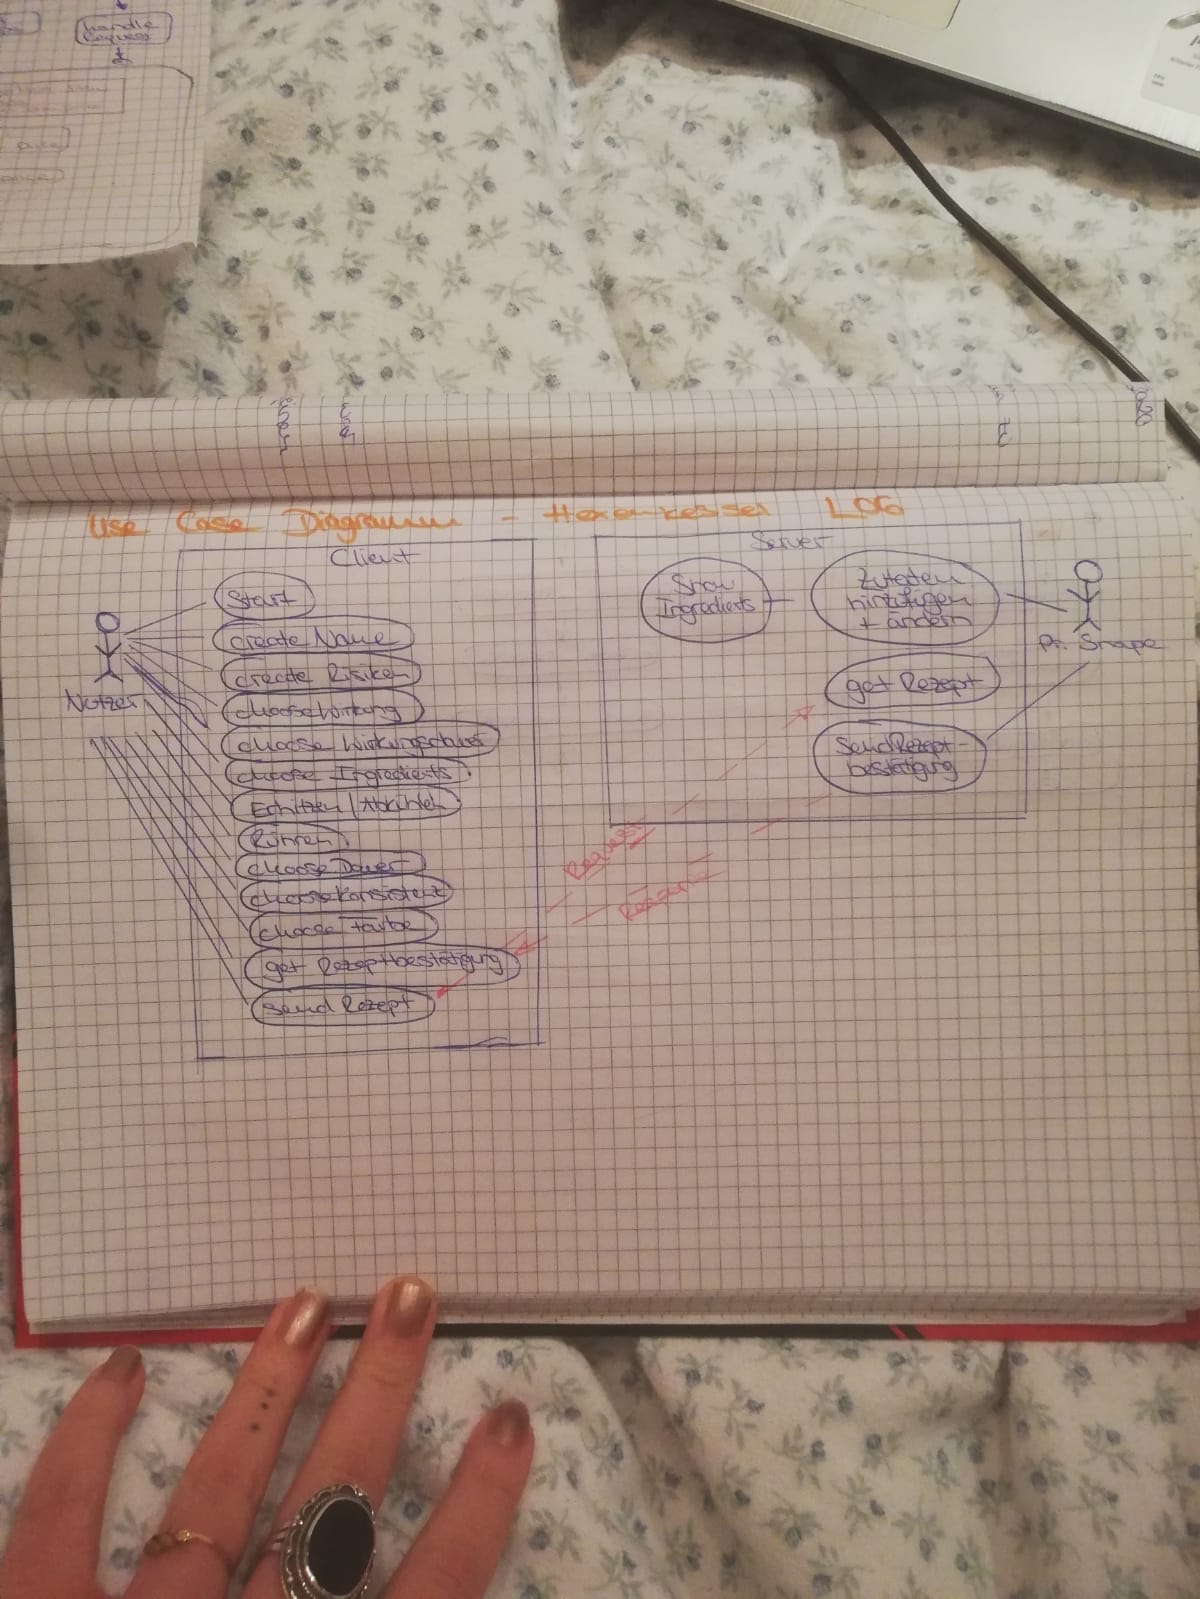 handle
request
Use Case Diagramm - Hexenkessel L06
Client
Start
create Name
create Risiken
choose Wirkung
choose Wirkungsdauer
choose Ingredients
Erhitzen / Abkühlen
Rühren
choose Dauer
choose Konsistenz
choose Farbe
get Rezeptbestätigung
send Rezept
Nutzer
Server
Show
Ingredients
Zutaten
hinzufügen
+ ändern
get Rezept
Send Rezept-
bestätigung
Pr. Snape
Request
Response